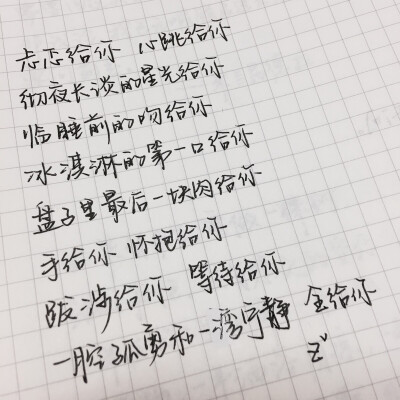 忐忑给你 心跳给你
彻夜长谈的星光给你
临睡前的吻给你
冰淇淋的第一口给你
盘子里最后一块肉给你
手给你 怀抱给你
跋涉给你 等待给你
一腔孤勇和一湾宁静 全给你